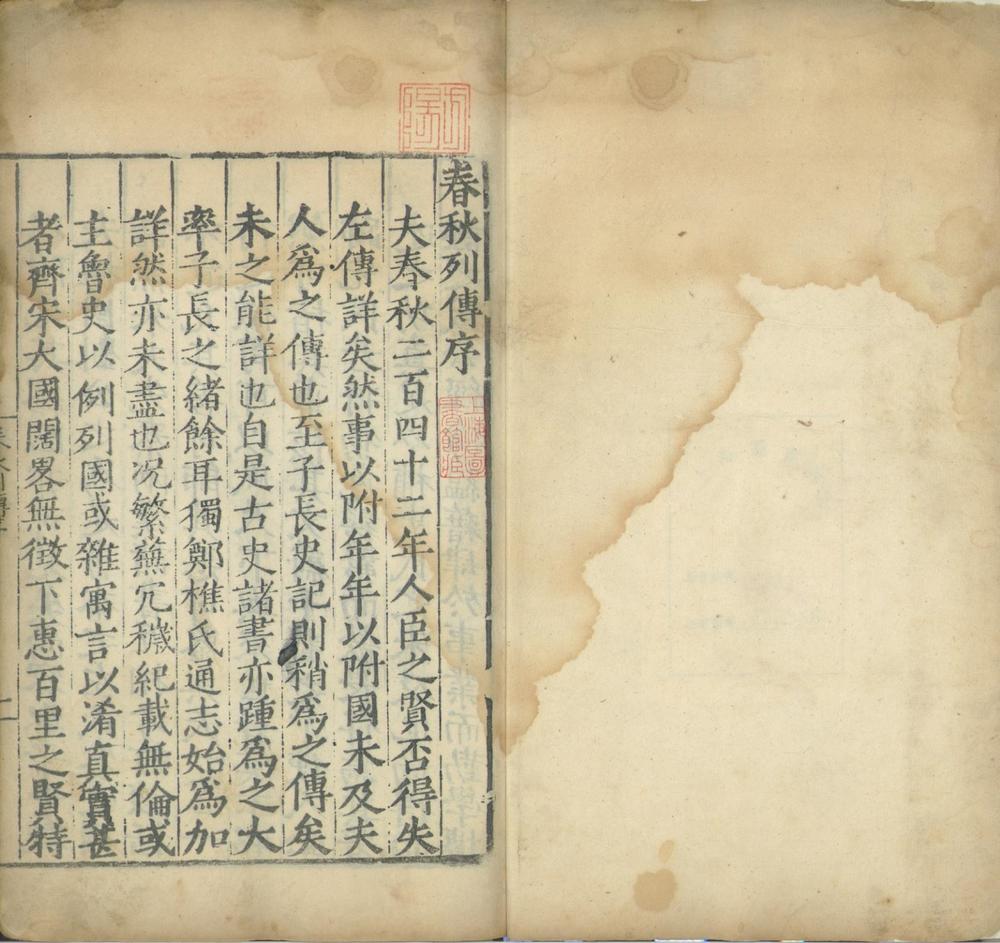 春秋列傳序
夫春秋二百四十二年人臣之賢否得失
左傳詳矣然事以附年年以附國未及夫
人爲之傳也至子長史記則稍爲之傳矣
未之能詳也自是古史諸書亦踵爲之大
率子長之緒餘耳獨鄭樵氏通志始爲加
詳然亦未盡也况繁蕪冗穢紀載無倫或
主魯史以例列國或雜寓言以淆真實甚
者齊宋大國闊畧無徵下惠百里之賢特
上海圖書館藏